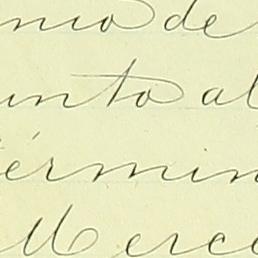 nio de
unto al
érmin
Merce